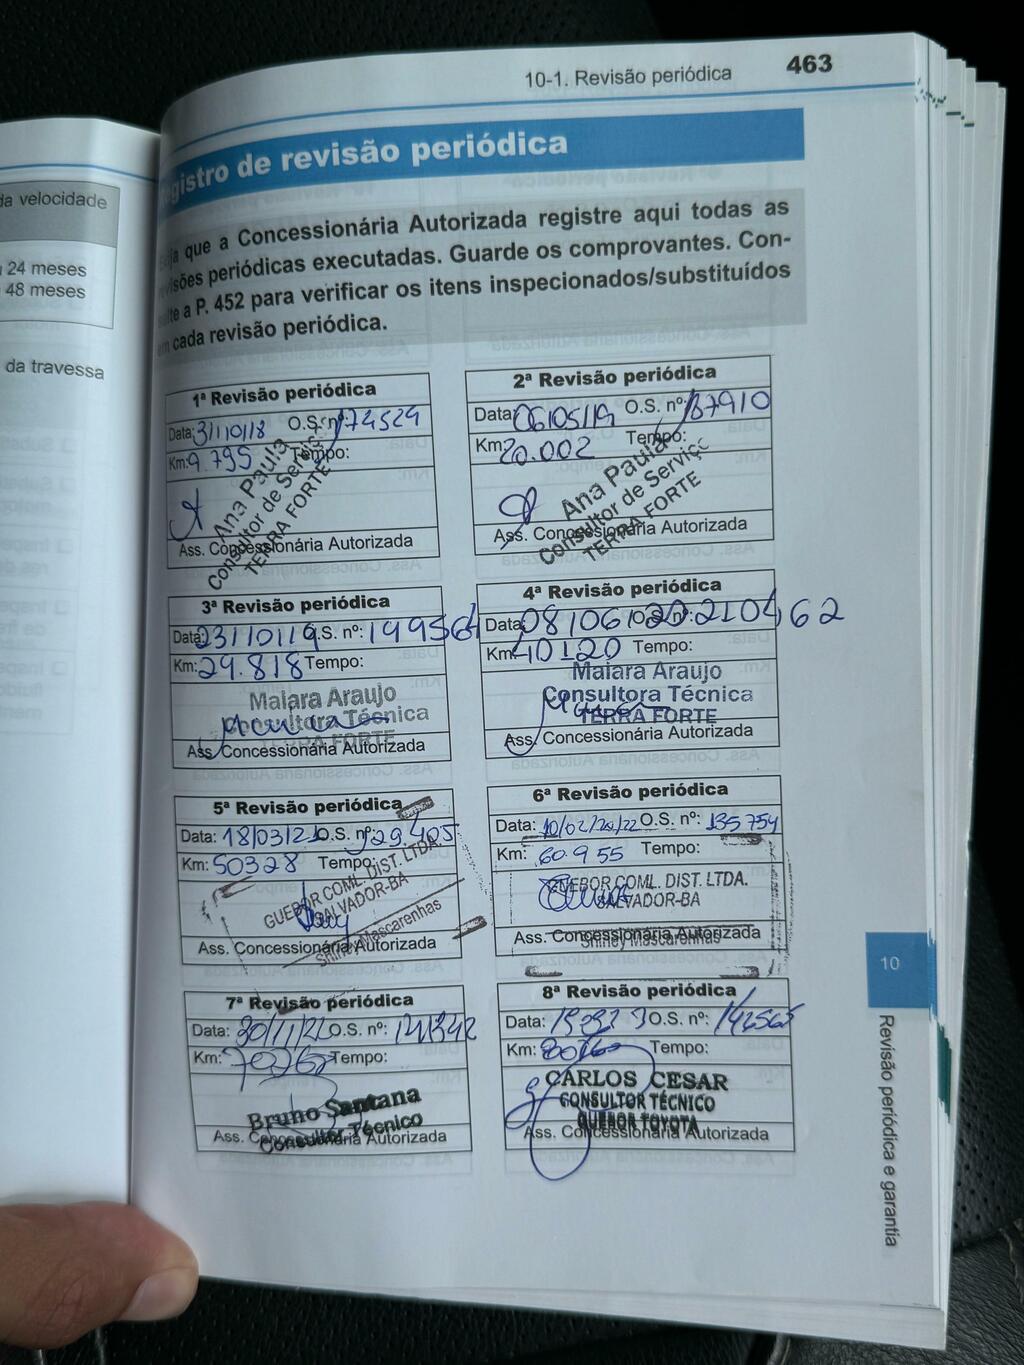 da velocidade
24 meses
48 meses
da travessa
10-1. Revisão periódica 463
gistro de revisão periódica
ja que a Concessionária Autorizada registre aqui todas as
visões periódicas executadas. Guarde os comprovantes. Con-
te a P. 452 para verificar os itens inspecionados/substituídos
cada revisão periódica.
1ª Revisão periódica
Data: 31/10/18 O.S. nº: 174529
Km: 9.795 Tempo:
Ana Paula
Consultor de Serviço
TERRA FORTE
Ass. Concessionária Autorizada
2ª Revisão periódica
Data: 06/05/19 O.S. nº: 187910
Km: 20.002 Tempo:
Ana Paula
Consultor de Serviço
TERRA FORTE
Ass. Concessionária Autorizada
3ª Revisão periódica
Data: 23/10/19 O.S. nº: 199564
Km: 29.818 Tempo:
Maiara Araujo
Consultora Técnica
TERRA FORTE
Ass. Concessionária Autorizada
4ª Revisão periódica
Data: 08/06/20 O.S. nº: 210462
Km: 40120 Tempo:
Maiara Araujo
Consultora Técnica
TERRA FORTE
Ass. Concessionária Autorizada
5ª Revisão periódica
Data: 18/03/21 O.S. nº: 129.405
Km: 50328 Tempo:
GUEBOR COML. DIST. LTDA.
SALVADOR-BA
Shirley Mascarenhas
Ass. Concessionária Autorizada
6ª Revisão periódica
Data: 10/02/2022 O.S. nº: 135754
Km: 60.955 Tempo:
GUEBOR COML. DIST. LTDA.
SALVADOR-BA
Ass. Concessionária Autorizada
Shirley Mascarenhas
7ª Revisão periódica
Data: 30/11/22 O.S. nº: 141342
Km: Tempo:
Bruno Santana
Consultor Técnico
Ass. Concessionária Autorizada
8ª Revisão periódica
Data: O.S. nº: 142565
Km: Tempo:
CARLOS CESAR
CONSULTOR TÉCNICO
GUEBOR TOYOTA
Ass. Concessionária Autorizada
10
Revisão periódica e garantia